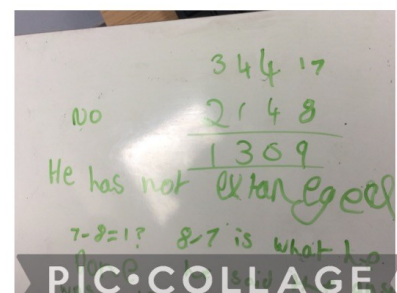 3 4 4 17
NO 2 1 4 8
1 3 0 9
He has not extangeged
7-8=1? 8-7 is what h
said
PIC•COLLAGE